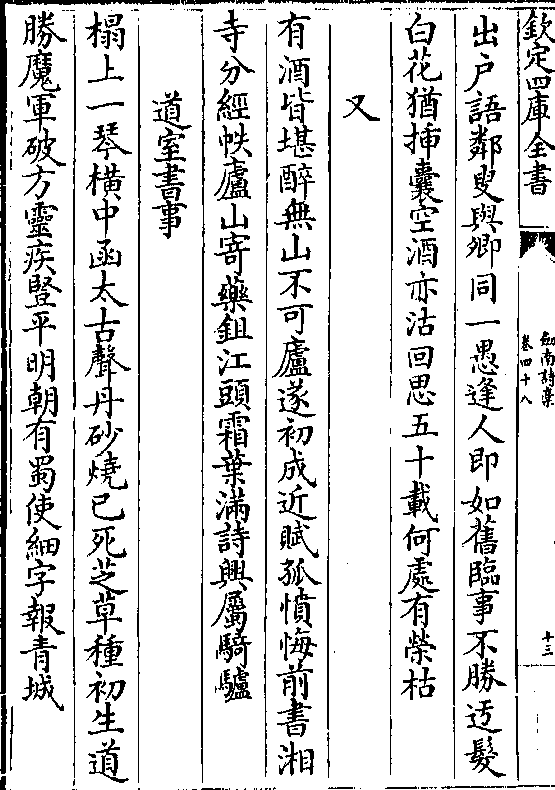 欽定四庫全書
劍南詩藁
卷四十八
十三
出户語鄰叟與卿同一愚逢人即如舊臨事不勝迃髮
白花猶揷囊空酒亦沽回思五十載何處有榮枯
又
有酒皆堪醉無山不可廬遂初成近賦孤憤悔前書湘
寺分經帙廬山寄藥鉏江頭霜葉滿詩興屬騎驢
道室書事
榻上一琴橫中函太古聲丹砂燒已死芝草種初生道
勝魔軍破方靈疾豎平明朝有蜀使細字報青城